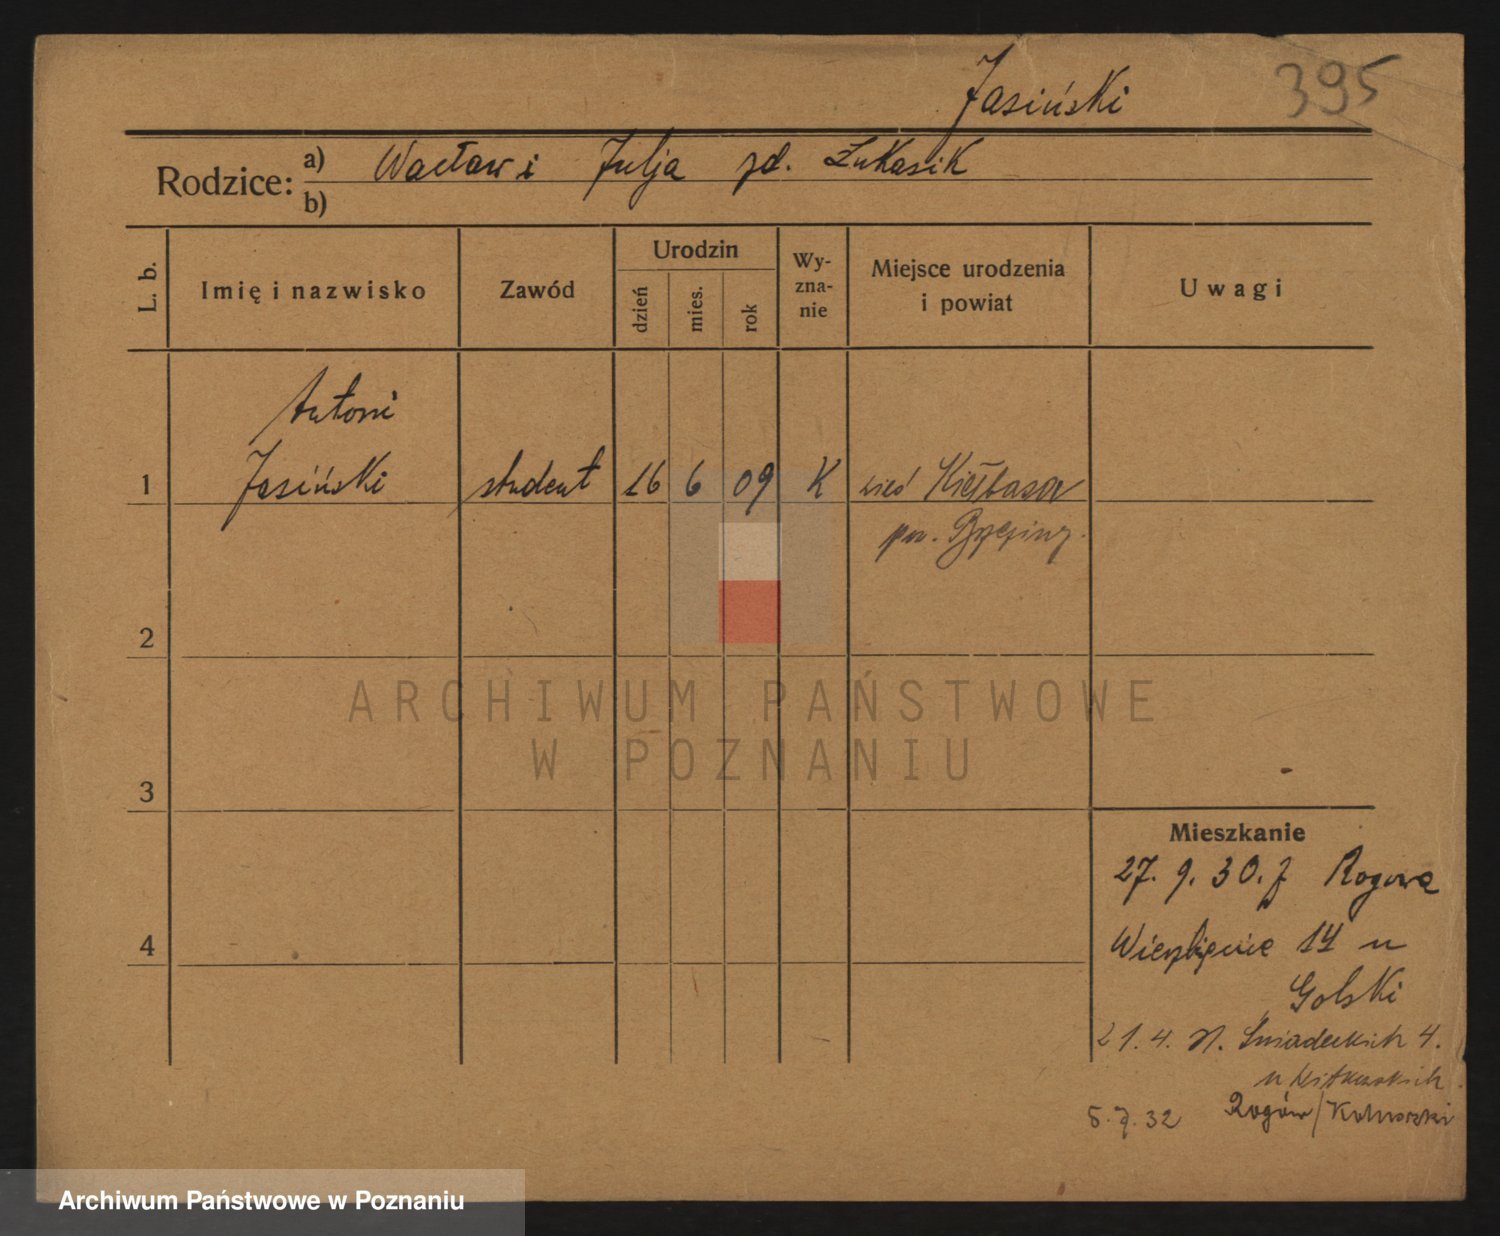 Jasiński
395
Rodzice:
a) Wacław i Julja zd. Łukasik
b)
L. b.
Imię i nazwisko
Zawód
Urodzin
dzień
mies.
rok
Wy-
zna-
nie
Miejsce urodzenia
i powiat
Uwagi
Antoni
1 Jasiński student 16 6 09 K wieś Kiełbasa
pow.
2
3
4
ARCHIWUM PAŃSTWOWE
W POZNANIU
Mieszkanie
27. 9. 30. z Rogowa
Wierzbięcice 14 u
Golski
21. 4. Śniadeckich 4.
u
5. 7. 32 Rogów/
Archiwum Państwowe w Poznaniu